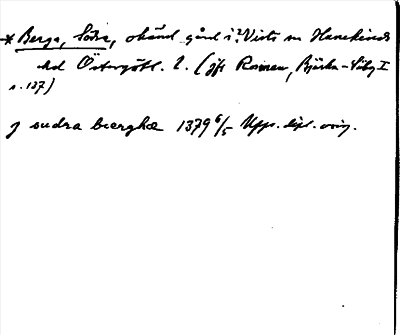 * Berga, Södra, okänd gård i ? Vists sn Hanekinds
hd Östergötl. l. (jfr Roman, Björka-Säby I
s. 137)
j sudra bierghæ 1379 6/5 Upps. dipl. orig.